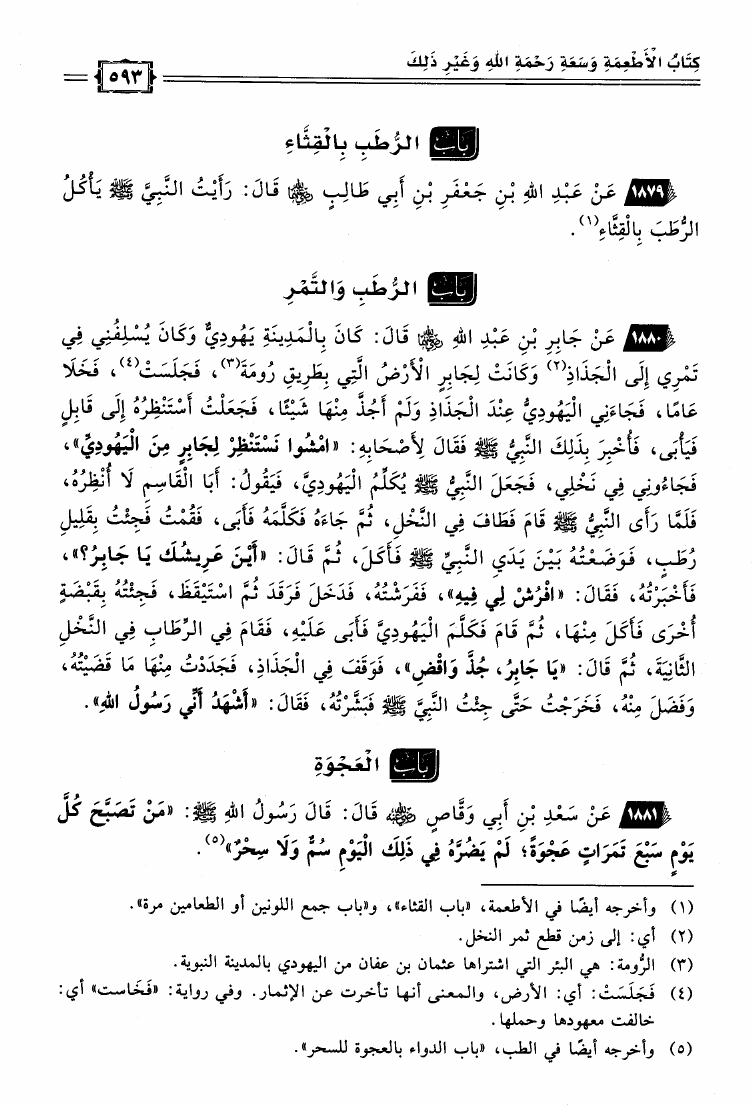 كِتَابُ الْأَطْعِمَةِ وَسَعَةِ رَحْمَةِ اللهِ وَغَيْرِ ذَلِكَ
٥٩٣
بَابُ الرُّطَبِ بِالْقِثَّاءِ
١٨٧٩ عَنْ عَبْدِ اللهِ بْنِ جَعْفَرِ بْنِ أَبِي طَالِبٍ ﵄ قَالَ: رَأَيْتُ النَّبِيَّ ﷺ يَأْكُلُ
الرُّطَبَ بِالْقِثَّاءِ(١).
بَابُ الرُّطَبِ وَالتَّمْرِ
١٨٨٠ عَنْ جَابِرِ بْنِ عَبْدِ اللهِ ﵄ قَالَ: كَانَ بِالْمَدِينَةِ يَهُودِيٌّ وَكَانَ يُسْلِفُنِي فِي
تَمْرِي إِلَى الْجَذَاذِ(٢) وَكَانَتْ لِجَابِرٍ الْأَرْضُ الَّتِي بِطَرِيقِ رُومَةَ(٣)، فَجَلَسَتْ(٤)، فَخَلَا
عَامًا، فَجَاءَنِي الْيَهُودِيُّ عِنْدَ الْجَذَاذِ وَلَمْ أَجُذَّ مِنْهَا شَيْئًا، فَجَعَلْتُ أَسْتَنْظِرُهُ إِلَى قَابِلٍ
فَيَأْبَى، فَأُخْبِرَ بِذَلِكَ النَّبِيُّ ﷺ فَقَالَ لِأَصْحَابِهِ: «امْشُوا نَسْتَنْظِرْ لِجَابِرٍ مِنَ الْيَهُودِيِّ»،
فَجَاءُونِي فِي نَخْلِي، فَجَعَلَ النَّبِيُّ ﷺ يُكَلِّمُ الْيَهُودِيَّ، فَيَقُولُ: أَبَا الْقَاسِمِ لَا أُنْظِرُهُ،
فَلَمَّا رَأَى النَّبِيُّ ﷺ قَامَ فَطَافَ فِي النَّخْلِ، ثُمَّ جَاءَهُ فَكَلَّمَهُ فَأَبَى، فَقُمْتُ فَجِئْتُ بِقَلِيلِ
رُطَبٍ، فَوَضَعْتُهُ بَيْنَ يَدَيِ النَّبِيِّ ﷺ فَأَكَلَ، ثُمَّ قَالَ: «أَيْنَ عَرِيشُكَ يَا جَابِرُ؟»،
فَأَخْبَرْتُهُ، فَقَالَ: «افْرُشْ لِي فِيهِ»، فَفَرَشْتُهُ، فَدَخَلَ فَرَقَدَ ثُمَّ اسْتَيْقَظَ، فَجِئْتُهُ بِقَبْضَةٍ
أُخْرَى فَأَكَلَ مِنْهَا، ثُمَّ قَامَ فَكَلَّمَ الْيَهُودِيَّ فَأَبَى عَلَيْهِ، فَقَامَ فِي الرِّطَابِ فِي النَّخْلِ
الثَّانِيَةَ، ثُمَّ قَالَ: «يَا جَابِرُ، جُذَّ وَاقْضِ»، فَوَقَفَ فِي الْجَذَاذِ، فَجَدَدْتُ مِنْهَا مَا قَضَيْتُهُ،
وَفَضَلَ مِنْهُ، فَخَرَجْتُ حَتَّى جِئْتُ النَّبِيَّ ﷺ فَبَشَّرْتُهُ، فَقَالَ: «أَشْهَدُ أَنِّي رَسُولُ اللهِ».
بَابُ الْعَجْوَةِ
١٨٨١ عَنْ سَعْدِ بْنِ أَبِي وَقَّاصٍ ﵁ قَالَ: قَالَ رَسُولُ اللهِ ﷺ: «مَنْ تَصَبَّحَ كُلَّ
يَوْمٍ سَبْعَ تَمَرَاتٍ عَجْوَةً؛ لَمْ يَضُرَّهُ فِي ذَلِكَ الْيَوْمِ سُمٌّ وَلَا سِحْرٌ»(٥).
(١) وأخرجه أيضًا في الأطعمة، «باب القثاء»، و«باب جمع اللونين أو الطعامين مرة».
(٢) أي: إلى زمن قطع ثمر النخل.
(٣) الرُّومة: هي البئر التي اشتراها عثمان بن عفان من اليهودي بالمدينة النبوية.
(٤) فَجَلَسَتْ: أي: الأرض، والمعنى أنها تأخرت عن الإثمار. وفي رواية: «فَخَاست» أي:
خالفت معهودها وحملها.
(٥) وأخرجه أيضًا في الطب، «باب الدواء بالعجوة للسحر».